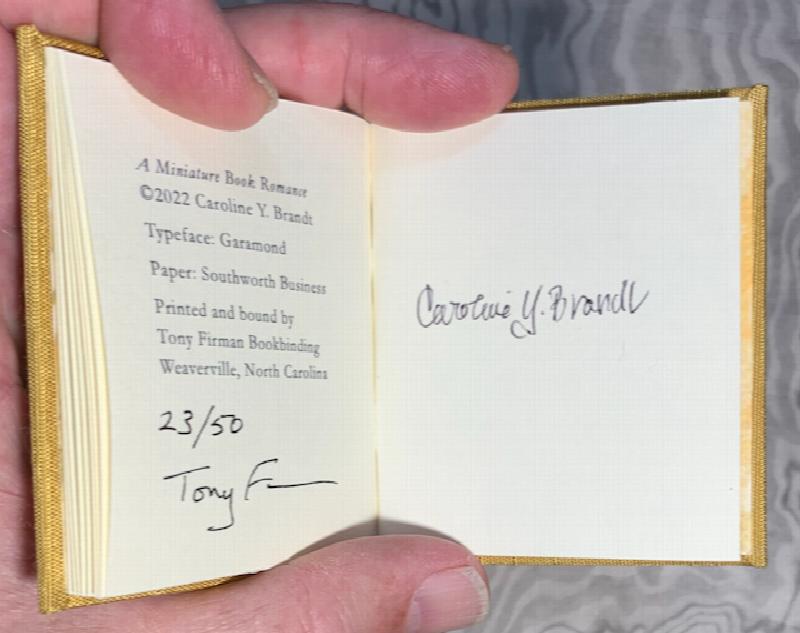 A Miniature Book Romance
©2022 Caroline Y. Brandt
Typeface: Garamond
Paper: Southworth Business
Printed and bound by
Tony Firman Bookbinding
Weaverville, North Carolina
23/50
Tony F
Caroline Y. Brandt